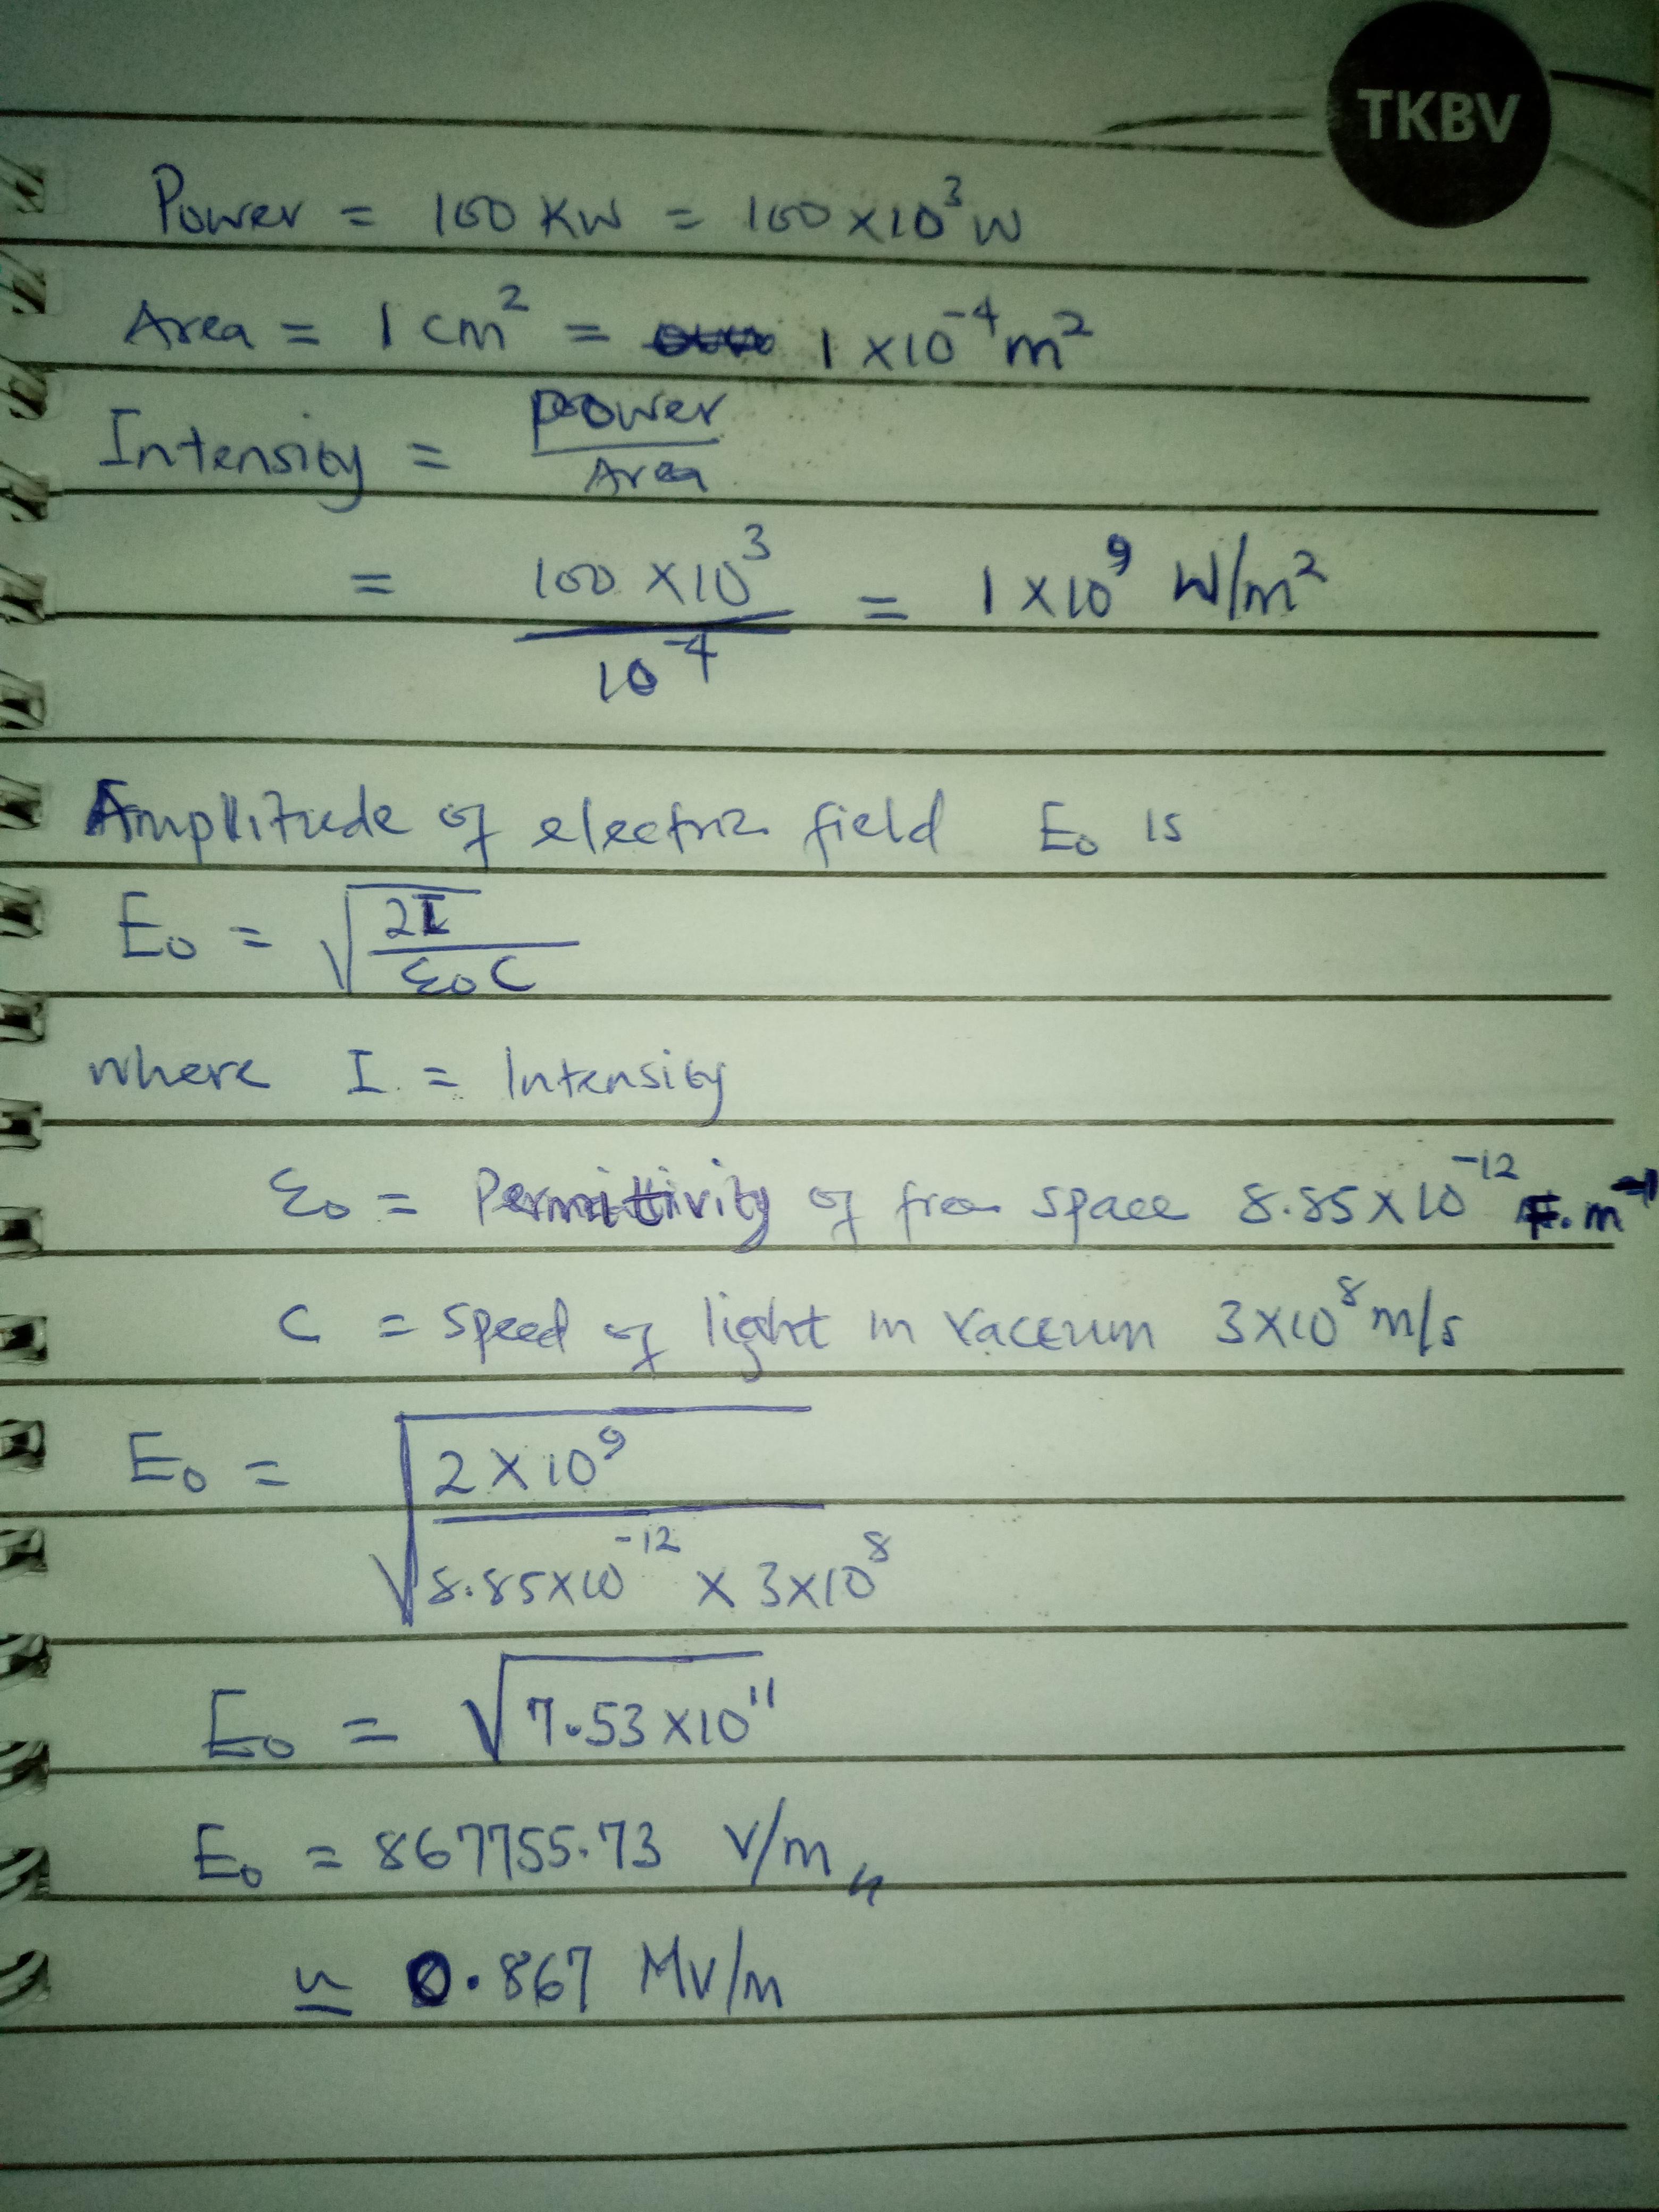 TKBV
Power = 100 KW = 100 ×10³ W
Area = 1 cm² = 1 ×10⁻⁴ m²
Intensity = Power / Area
= 100 ×10³ / 10⁻⁴ = 1 ×10⁹ W/m²
Amplitude of electric field E₀ is
E₀ = √(2I / ε₀C)
where I = Intensity
ε₀ = Permittivity of free space 8.85×10⁻¹² F.m⁻¹
C = Speed of light in vacuum 3×10⁸ m/s
E₀ = √(2 × 10⁹ / 8.85×10⁻¹² × 3×10⁸)
E₀ = √(7.53 ×10¹¹)
E₀ = 867755.73 V/m
≃ 0.867 MV/m